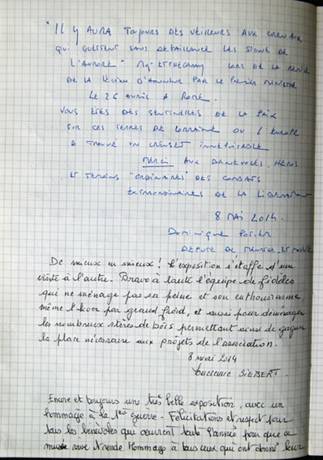 "Il y aura toujours des veilleurs aux créneaux
qui guettent sans défaillance les signes de
l'aurore" Mgr Etchegaray lors de la remise
de la légion d'honneur par le Premier Ministre
le 26 avril à Rome.
Vous êtes des sentinelles de la Paix
sur ces terres de Lorraine où l'Europe
a trouvé un creuset
Merci aux bénévoles, héros
et témoins "ordinaires" des combats
extraordinaires de la Libération
8 mai 2014.
Dominique Potier
Député de Meurthe et Moselle
De mieux en mieux ! L'exposition s'étoffe d'une
visite à l'autre. Bravo à toute l'équipe de fidèles
qui ne ménage pas sa peine et son enthousiasme
même l'hiver par grand froid, et aussi pour déménager
les nombreux stères de bois permettant ainsi de gagner
la place nécessaire aux projets de l'association.
8 mai 2014
Encore et toujours une très belle exposition, avec un
hommage à la 1ère guerre - Félicitations et respect pour
tous les bénévoles qui oeuvrent toute l'année pour que ce
musée vive et rende hommage à tous ceux qui ont donné leur